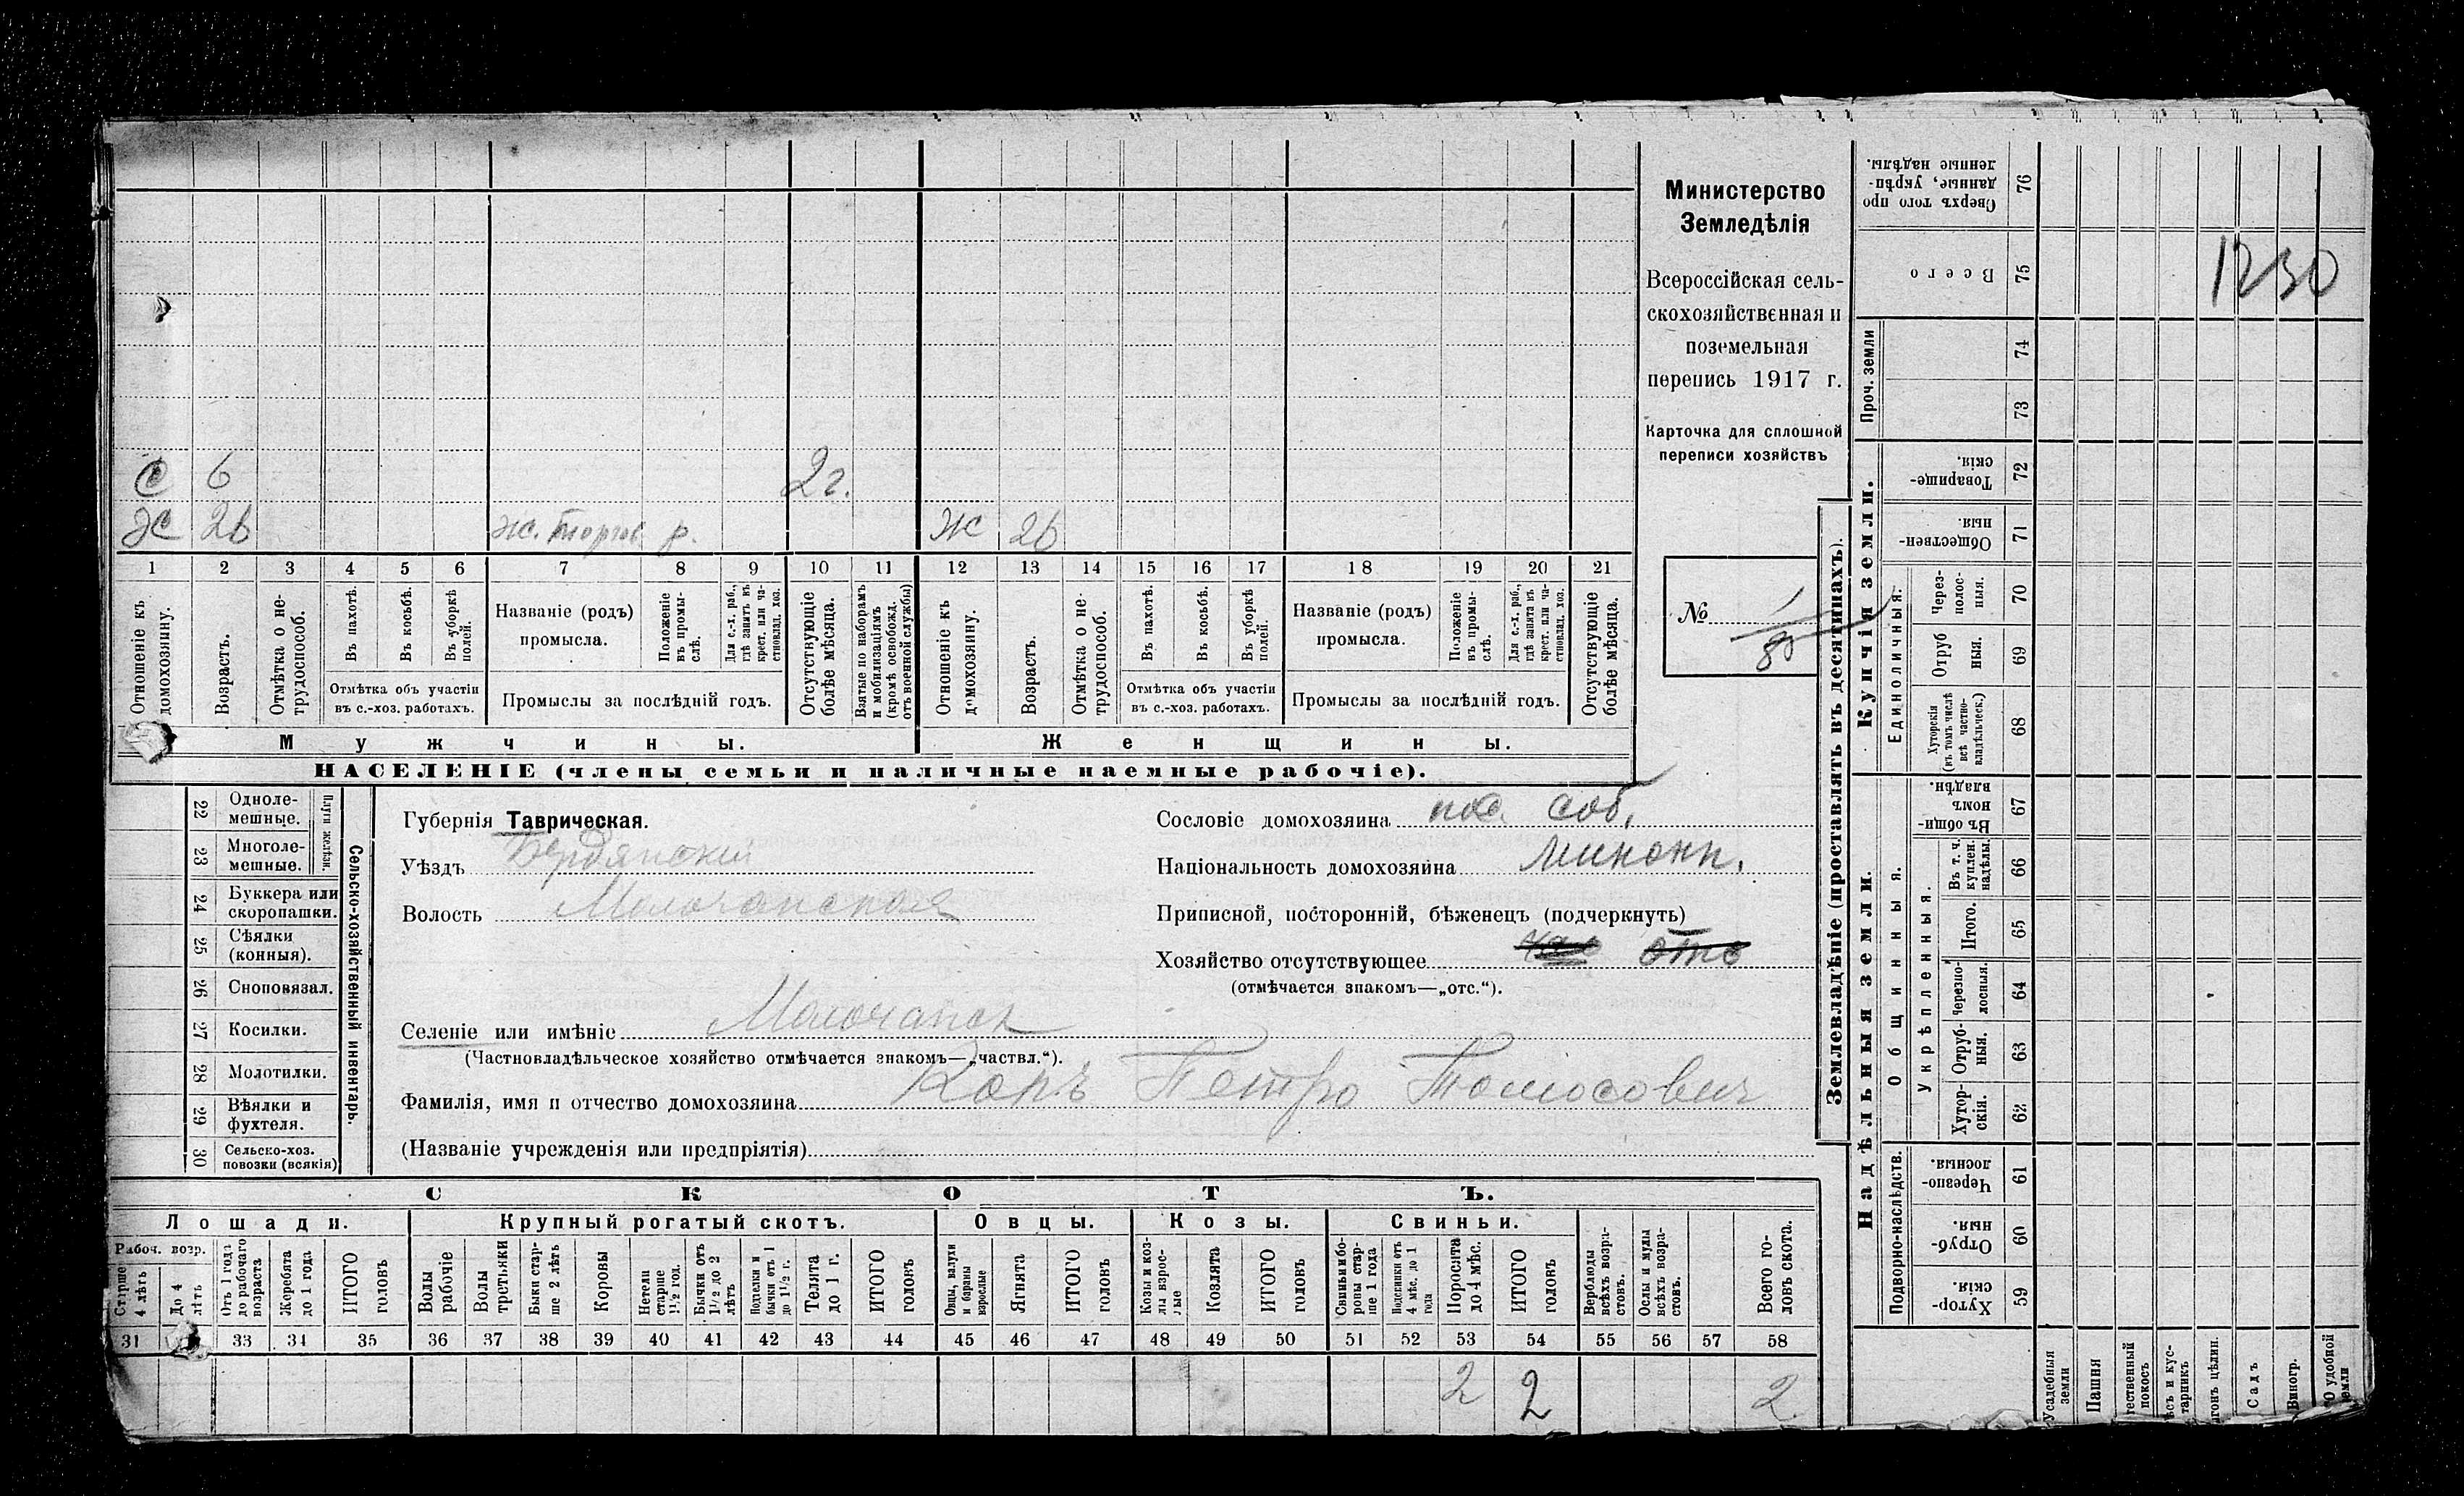 Министерство
Земледѣлія
Всероссійская сель-
скохозяйственная и
поземельная
перепись 1917 г.
Карточка для сплошной
переписи хозяйствъ
№ 1
80
С 6 2 г.
Ж 26
1 2 3 4 5 6 7 8 9 10 11 12 13 14 15 16 17 18 19 20 21
Отношеніе къ домохозяину.
Возрастъ.
Отмѣтка о не-трудоспособ.
Въ пахотѣ.
Въ косьбѣ.
Въ уборкѣ полей.
Отмѣтка объ участіи
въ с.-хоз. работахъ.
Названіе (родъ)
промысла.
Положеніе въ промы-слѣ.
Для с.-х. раб., гдѣ занятъ въ крест. или ча-стновлад. хоз.
Промыслы за послѣдній годъ.
Отсутствующіе болѣе мѣсяца.
Взятые по наборамъ и мобилизаціямъ (кромѣ освобожд. отъ военной службы)
Отношеніе къ домохозяину.
Возрастъ.
Отмѣтка о не-трудоспособ.
Въ пахотѣ.
Въ косьбѣ.
Въ уборкѣ полей.
Отмѣтка объ участіи
въ с.-хоз. работахъ.
Названіе (родъ)
промысла.
Положеніе въ промы-слѣ.
Для с.-х. раб., гдѣ занята въ крест. или ча-стновлад. хоз.
Промыслы за послѣдній годъ.
Отсутствующіе болѣе мѣсяца.
Мужчины.
Женщины.
НАСЕЛЕНІЕ (члены семьи и наличные наемные рабочіе).
22 Одноле-мешные.
23 Многоле-мешные.
Плуги желѣзн.
24 Буккера или скоропашки.
25 Сѣялки (конныя).
26 Сноповязал.
27 Косилки.
28 Молотилки.
29 Вѣялки и фухтеля.
30 Сельско-хоз. повозки (всякія)
Сельско-хозяйственный инвентарь.
Губернія Таврическая.
Уѣздъ Бердянскій
Волость Молочанская
Селеніе или имѣніе Молочанск
(Частновладѣльческое хозяйство отмѣчается знакомъ—„частвл.“).
Фамилія, имя и отчество домохозяина Петро
(Названіе учрежденія или предпріятія)
Сословіе домохозяина пос. соб.
Національность домохозяина
Приписной, посторонній, бѣженецъ (подчеркнуть)
Хозяйство отсутствующее
(отмѣчается знакомъ—„отс.“).
СКОТЪ.
Лошади. Крупный рогатый скотъ. Овцы. Козы. Свиньи.
Рабоч. возр.
Старше 4 лѣтъ
До 4 лѣтъ
Отъ 1 года до рабочаго возраста
Жеребята до 1 года
ИТОГО головъ
Волы рабочіе
Волы третьяки
Быки стар-ше 2 лѣтъ
Коровы
Нетели старше 1½ год.
Бычки отъ 1½ до 2 лѣтъ
Подтелки и бычки отъ 1 до 1½ г.
Телята до 1 г.
ИТОГО головъ
Овцы, валухи и бараны взрослые
Ягнята
ИТОГО головъ
Козы и коз-лы взрос-лые
Козлята
ИТОГО головъ
Свиньи и бо-ровы стар-ше 1 года
Подсвинки отъ 4 мѣс. до 1 года
Поросята до 4 мѣс.
ИТОГО головъ
Верблюды всѣхъ возра-стовъ.
Ослы и мулы всѣхъ возра-стовъ.
Всего го-ловъ скота.
31 33 34 35 36 37 38 39 40 41 42 43 44 45 46 47 48 49 50 51 52 53 54 55 56 57 58
2 2 2
Землевладѣніе (проставлять въ десятинахъ).
Надѣльныя земли.
Купчія земли.
Проч. земли
Подворно-наслѣдств.
Общинныя.
Укрѣпленныя.
Единоличныя.
Сверхъ того про данные, укрѣп-ленные надѣлы. 76
Всего 75
1230
74
73
Товарище-скія. 72
Обществен-ныя 71
Через-полос-ныя. 70
Отруб ныя. 69
Хуторскія (въ томъ числѣ всѣ частно-владѣльческ.) 68
Въ общи-номъ владѣн. 67
Въ т. ч. куплен. надѣлы. 66
Итого. 65
Черезпо-лосныя. 64
Отруб-ныя. 63
Хутор-скія. 62
Черезпо-лосныя. 61
Отруб-ныя. 60
Хутор-скія. 59
Усадебныя земли
Пашня
покосъ
и кус-тарникъ
цѣлин.
Садъ
Виногр.
удобной земли